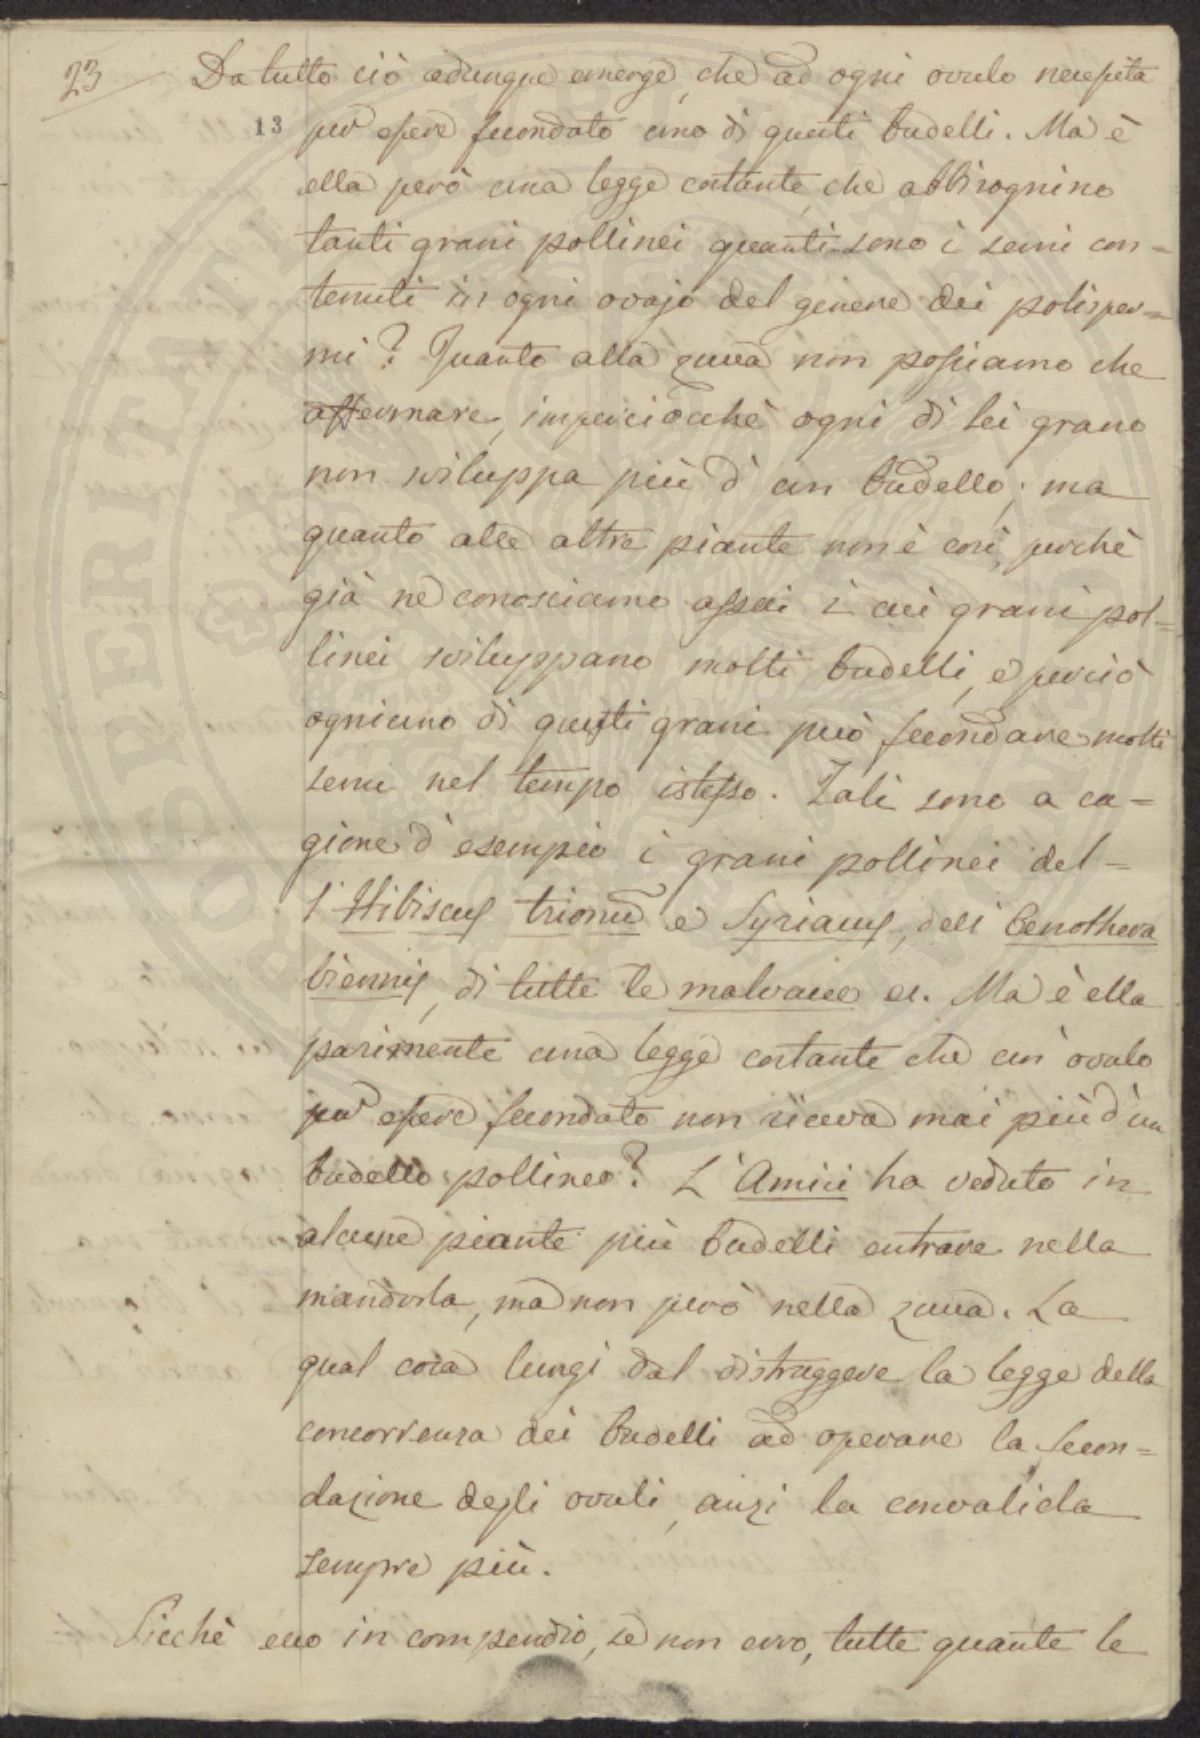 23
Da tutto ciò adunque emerge, che ad ogni ovulo necessita
13
per essere fecondato uno di questi budelli. Ma è
ella però una legge costante, che abbisognino
tanti grani pollinei quanti sono i semi con=
tenuti in ogni ovajo del genere dei polisper=
mi? Quanto alla zucca non possiamo che
affermare, imperciocchè ogni di lei grano
non sviluppa più d'un budello; ma
quanto alle altre piante non è così, perchè
già ne conosciamo assai i cui grani pol=
linei sviluppano molti budelli, e perciò
ogniuno di questi grani può fecondare molti
semi nel tempo istesso. Tali sono a ca=
gione d'esempio i grani pollinei del=
l'Hibiscus trionum e Syriacus, dell'Oenothera
biennis, di tutte le malvacee ec. Ma è ella
parimente una legge costante che un ovulo
per essere fecondato non riceva mai più d'un
budello pollineo? L'Amici ha veduto in
alcune piante più budelli entrare nella
mandorla, ma non però nella zucca. La
qual cosa lungi dal distruggere la legge della
concorrenza dei budelli ad operare la fecon=
dazione degli ovuli, anzi la convalida
sempre più.
Sicchè ecco in compendio, se non erro, tutte quante le